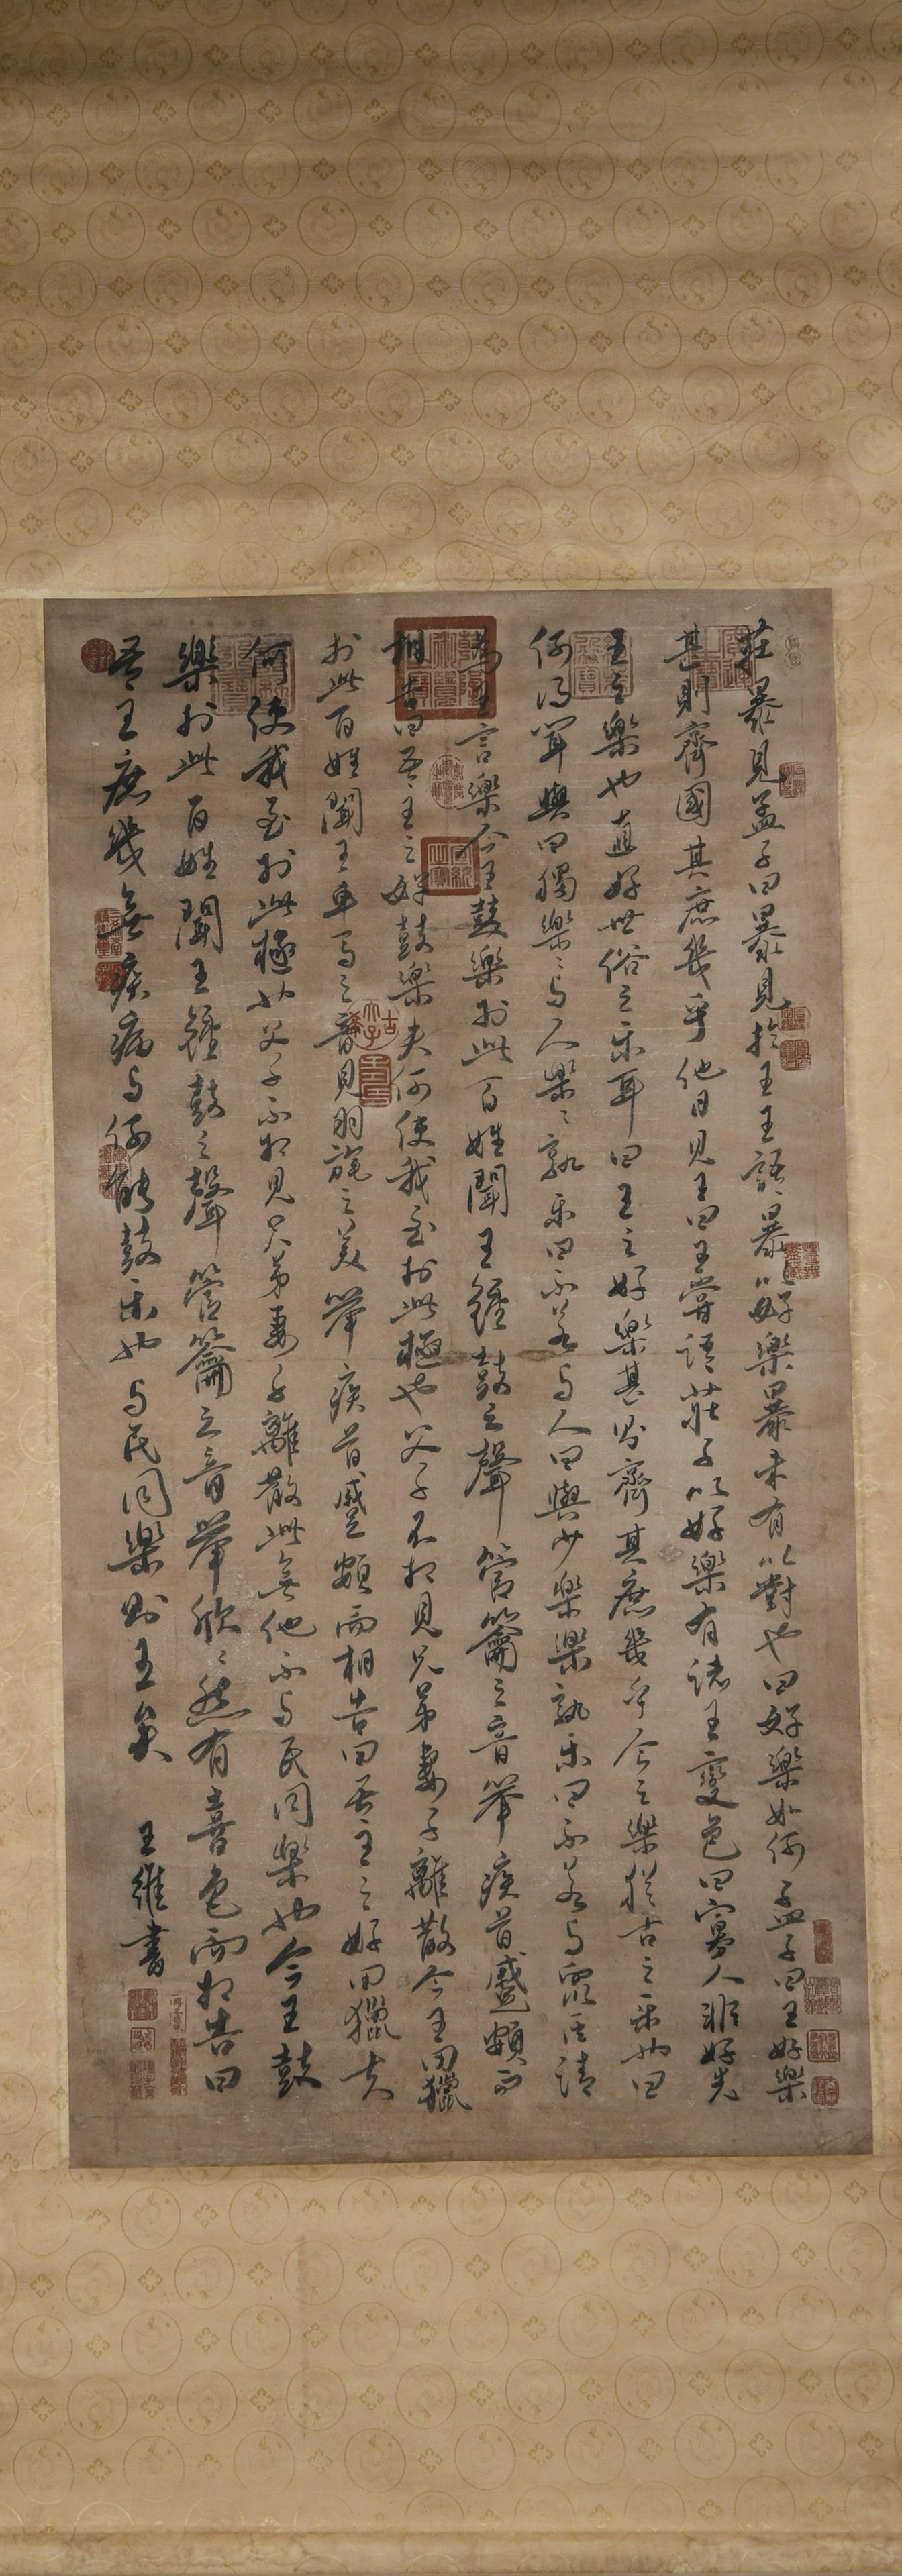 莊暴見孟子曰暴見於王王語暴以好樂暴未有以對也曰好樂如何孟子曰王好樂
甚則齊國其庶幾乎他日見王曰王嘗語莊子以好樂有諸王變色曰寡人非好先
王之樂也直好世俗之樂耳曰王之好樂甚則齊其庶幾乎今之樂猶古之樂也曰
何得聞與曰獨樂〻與人樂〻孰樂曰不若與人曰與少樂樂孰樂曰不若與眾臣請
為王言樂今王鼓樂於此百姓聞王鐘鼓之聲管籥之音舉疾首蹙頞而
相告曰吾王之好鼓樂夫何使我至於此極也父子不相見兄弟妻子離散今王田獵
於此百姓聞王車馬之音見羽旄之美舉疾首蹙頞而相告曰吾王之好田獵夫
何使我至於此極也父子不相見兄弟妻子離散此無他不與民同樂也今王鼓
樂於此百姓聞王鐘鼓之聲管籥之音舉欣〻然有喜色而相告曰
吾王庶幾無疾病與何能鼓樂也與民同樂則王矣
王維書